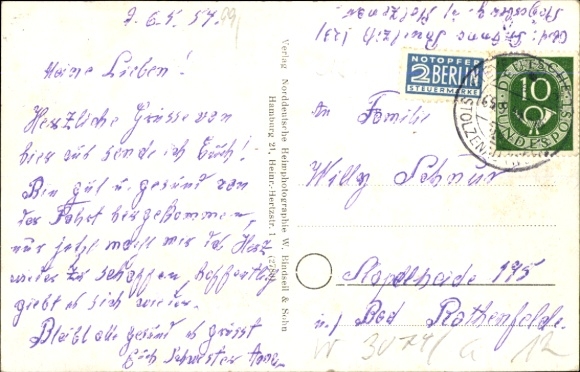 d. 6.5.54.
Meine Lieben!
Herzliche Grüsse von
hier aus sende ich Euch!
Bin gut u. gesund von
der Fahrt hergekommen,
nur jetzt macht mir das Herz
wieder zu schaffen. Hoffentlich
giebt es sich wieder.
Bleibt alle gesund es grüsst
Euch Schwester Anna
Verlag Norddeutsche Heimphotographie W. Bindseil & Sohn
Hamburg 21, Heinr.-Hertzstr. 1
Anna
(23)
Stolzenau
NOTOPFER
2 BERLIN
STEUERMARKE
DEUTSCHE
10
BUNDESPOST
STOLZENAU
An Familie
Willy Schnur
195
in Bad Rothenfelde.
12